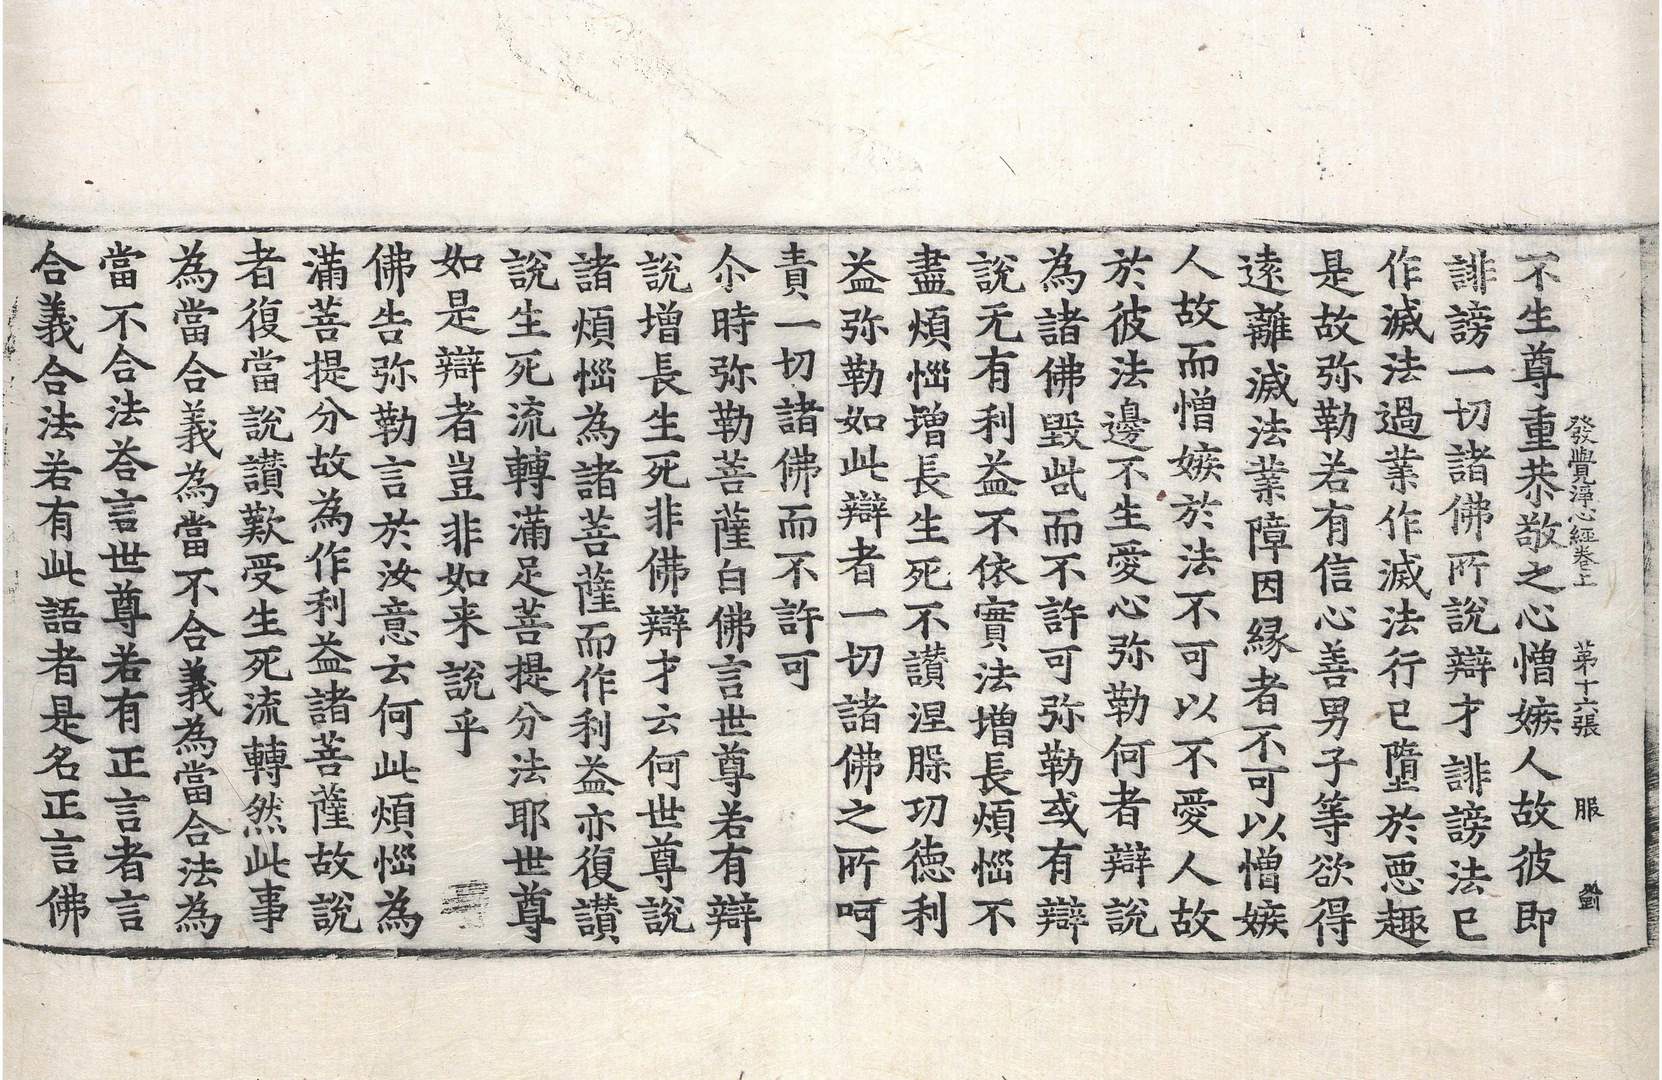 發覺淨心經卷上　第十六張　服　劉
不生尊重恭敬之心憎嫉人故彼即
誹謗一切諸佛所說辯才誹謗法已
作滅法過業作滅法行已墮於惡趣
是故弥勒若有信心善男子等欲得
遠離滅法業障因緣者不可以憎嫉
人故而憎嫉於法不可以不愛人故
於彼法邊不生愛心弥勒何者辯說
為諸佛毀呰而不許可弥勒或有辯
說无有利益不依實法增長煩惱不
盡煩惱增長生死不讃涅槃功德利
益弥勒如此辯者一切諸佛之所呵
責一切諸佛而不許可
尒時弥勒菩薩白佛言世尊若有辯
說增長生死非佛辯才云何世尊說
諸煩惱為諸菩薩而作利益亦復讃
說生死流轉滿足菩提分法耶世尊
如是辯者豈非如来說乎
佛告弥勒言於汝意云何此煩惱為
滿菩提分故為作利益諸菩薩故說
者復當說讃歎受生死流轉然此事
為當合義為當不合義為當合法為
當不合法荅言世尊若有正言者言
合義合法若有此語者是名正言佛